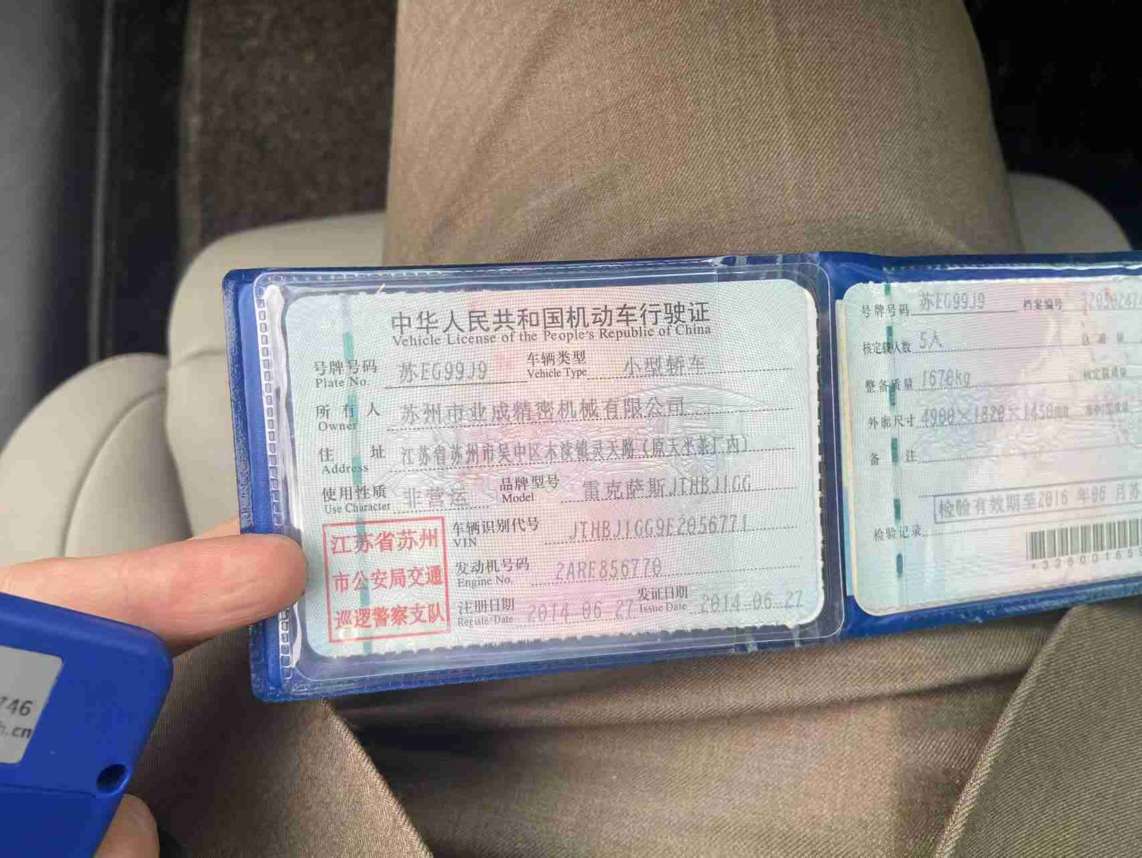 中华人民共和国机动车行驶证
Vehicle License of the People's Republic of China
号牌号码 苏EG99J9 车辆类型 小型轿车
Plate No. Vehicle Type
所有人 苏州市业成精密机械有限公司
Owner
住址 江苏省苏州市吴中区木渎镇灵天路(原天平茶厂内)
Address
使用性质 非营运 品牌型号 雷克萨斯JTHBJ1GG
Use Character Model
江苏省苏州
市公安局交通
巡逻警察支队
车辆识别代号 JTHBJ1GG9E2056771
VIN
发动机号码 2ARE856770
Engine No.
注册日期 2014.06.27 发证日期 2014.06.27
Register Date Issue Date
号牌号码 苏EG99J9 档案编号
核定载人数 5人
整备质量 1670kg
外廓尺寸 4900×1820×1450mm
备注
检验有效期至2016年06月
检验记录
746
.cn